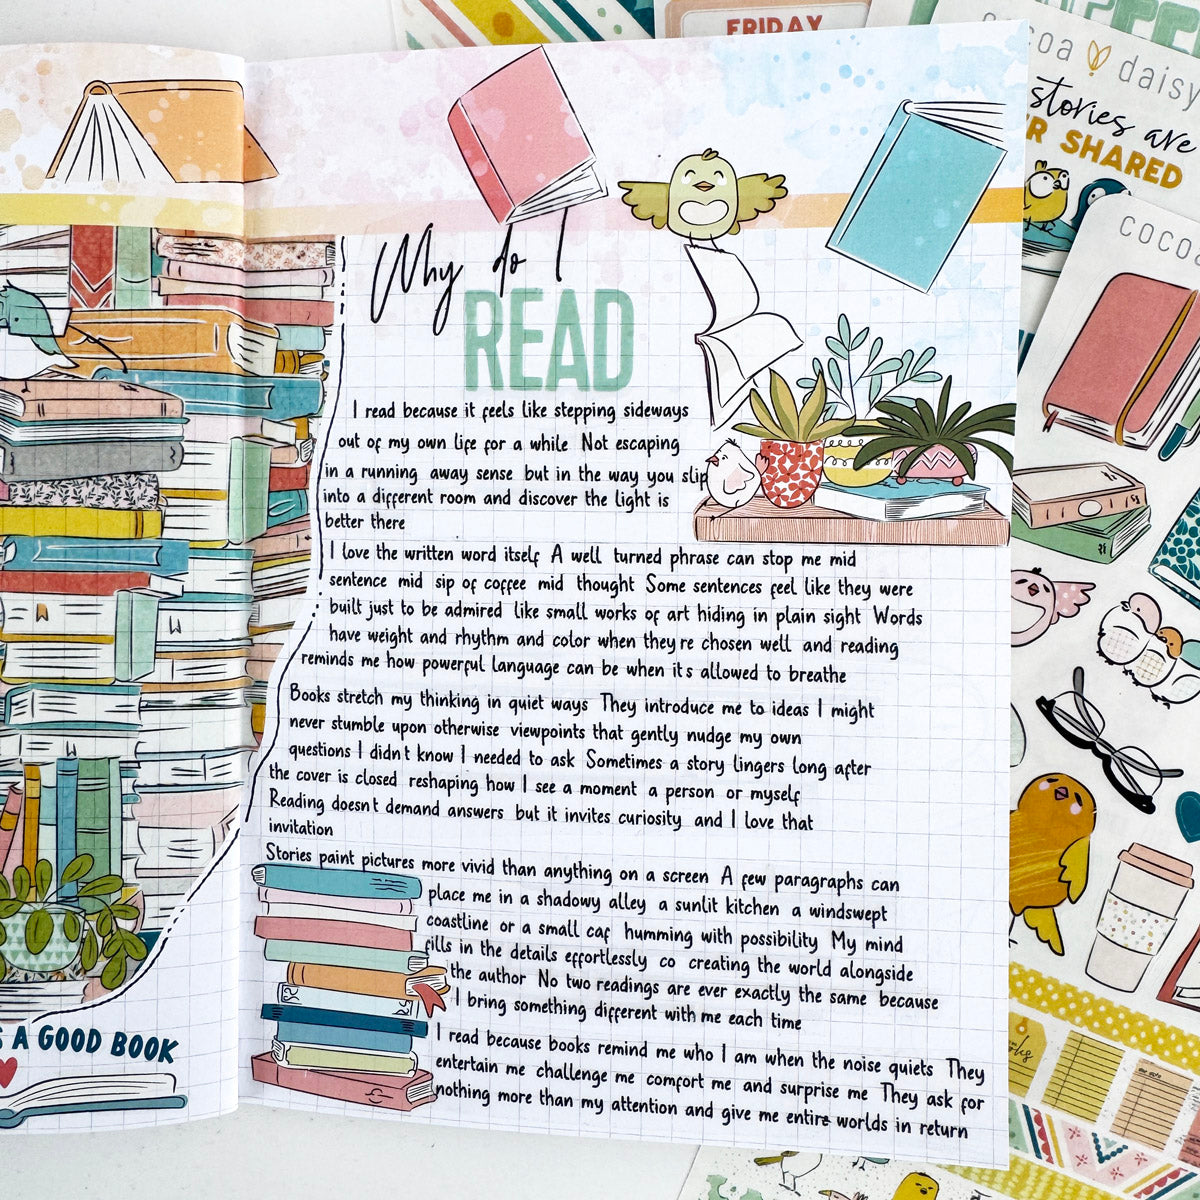 FRIDAY
coa daisy
stories are
R SHARED
COCO
Why do I
READ
I read because it feels like stepping sideways
out of my own life for a while Not escaping
in a running away sense but in the way you slip
into a different room and discover the light is
better there
I love the written word itself A well turned phrase can stop me mid
sentence mid sip of coffee mid thought Some sentences feel like they were
built just to be admired like small works of art hiding in plain sight Words
have weight and rhythm and color when they re chosen well and reading
reminds me how powerful language can be when it s allowed to breathe
Books stretch my thinking in quiet ways They introduce me to ideas I might
never stumble upon otherwise viewpoints that gently nudge my own
questions I didn t know I needed to ask Sometimes a story lingers long after
the cover is closed reshaping how I see a moment a person or myself
Reading doesn t demand answers but it invites curiosity and I love that
invitation
Stories paint pictures more vivid than anything on a screen A few paragraphs can
place me in a shadowy alley a sunlit kitchen a windswept
coastline or a small caf humming with possibility My mind
fills in the details effortlessly co creating the world alongside
the author No two readings are ever exactly the same because
I bring something different with me each time
I read because books remind me who I am when the noise quiets They
entertain me challenge me comfort me and surprise me They ask for
nothing more than my attention and give me entire worlds in return
S A GOOD BOOK